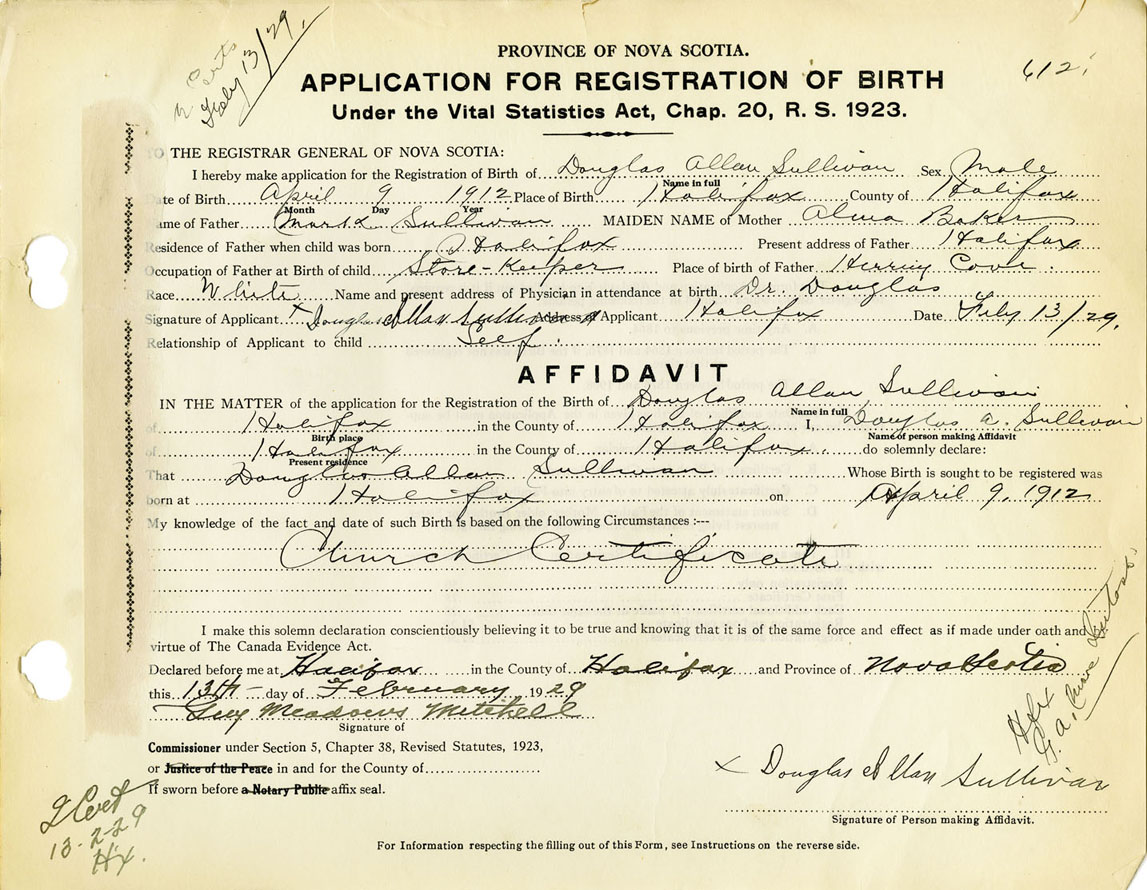 Certs
Feby 13/29.
612.
PROVINCE OF NOVA SCOTIA.
APPLICATION FOR REGISTRATION OF BIRTH
Under the Vital Statistics Act, Chap. 20, R. S. 1923.
TO THE REGISTRAR GENERAL OF NOVA SCOTIA:
I hereby make application for the Registration of Birth of Douglas Allan Sullivan Sex Male
Name in full
Date of Birth April 9 1912 Place of Birth Halifax County of Halifax
Month Day Year
Name of Father Sullivan MAIDEN NAME of Mother Alma Baker
Residence of Father when child was born Halifax Present address of Father Halifax
Occupation of Father at Birth of child Store-Keeper Place of birth of Father Herring Cove.
Race White Name and present address of Physician in attendance at birth Dr. Douglas
Signature of Applicant x Douglas Allan Sullivan Address of Applicant Halifax Date Feby 13/29.
Relationship of Applicant to child Self.
AFFIDAVIT
IN THE MATTER of the application for the Registration of the Birth of Douglas Allan Sullivan
Name in full
of Halifax in the County of Halifax I, Douglas A. Sullivan
Birth place Name of person making Affidavit
of Halifax in the County of Halifax. do solemnly declare:
Present residence
That Douglas Allan Sullivan Whose Birth is sought to be registered was
born at Halifax on April 9, 1912
My knowledge of the fact and date of such Birth is based on the following Circumstances :---
Church Certificate
I make this solemn declaration conscientiously believing it to be true and knowing that it is of the same force and effect as if made under oath and
virtue of The Canada Evidence Act.
Declared before me at Halifax in the County of Halifax and Province of Nova Scotia
this 13th day of February, 1929
Guy Meadows Mitchell
Signature of
Commissioner under Section 5, Chapter 38, Revised Statutes, 1923,
or Justice of the Peace in and for the County of
If sworn before a Notary Public affix seal.
x Douglas Allan Sullivan
Signature of Person making Affidavit.
Hfx
G. A.
1 Cert
13-2-29
Hx.
For Information respecting the filling out of this Form, see Instructions on the reverse side.